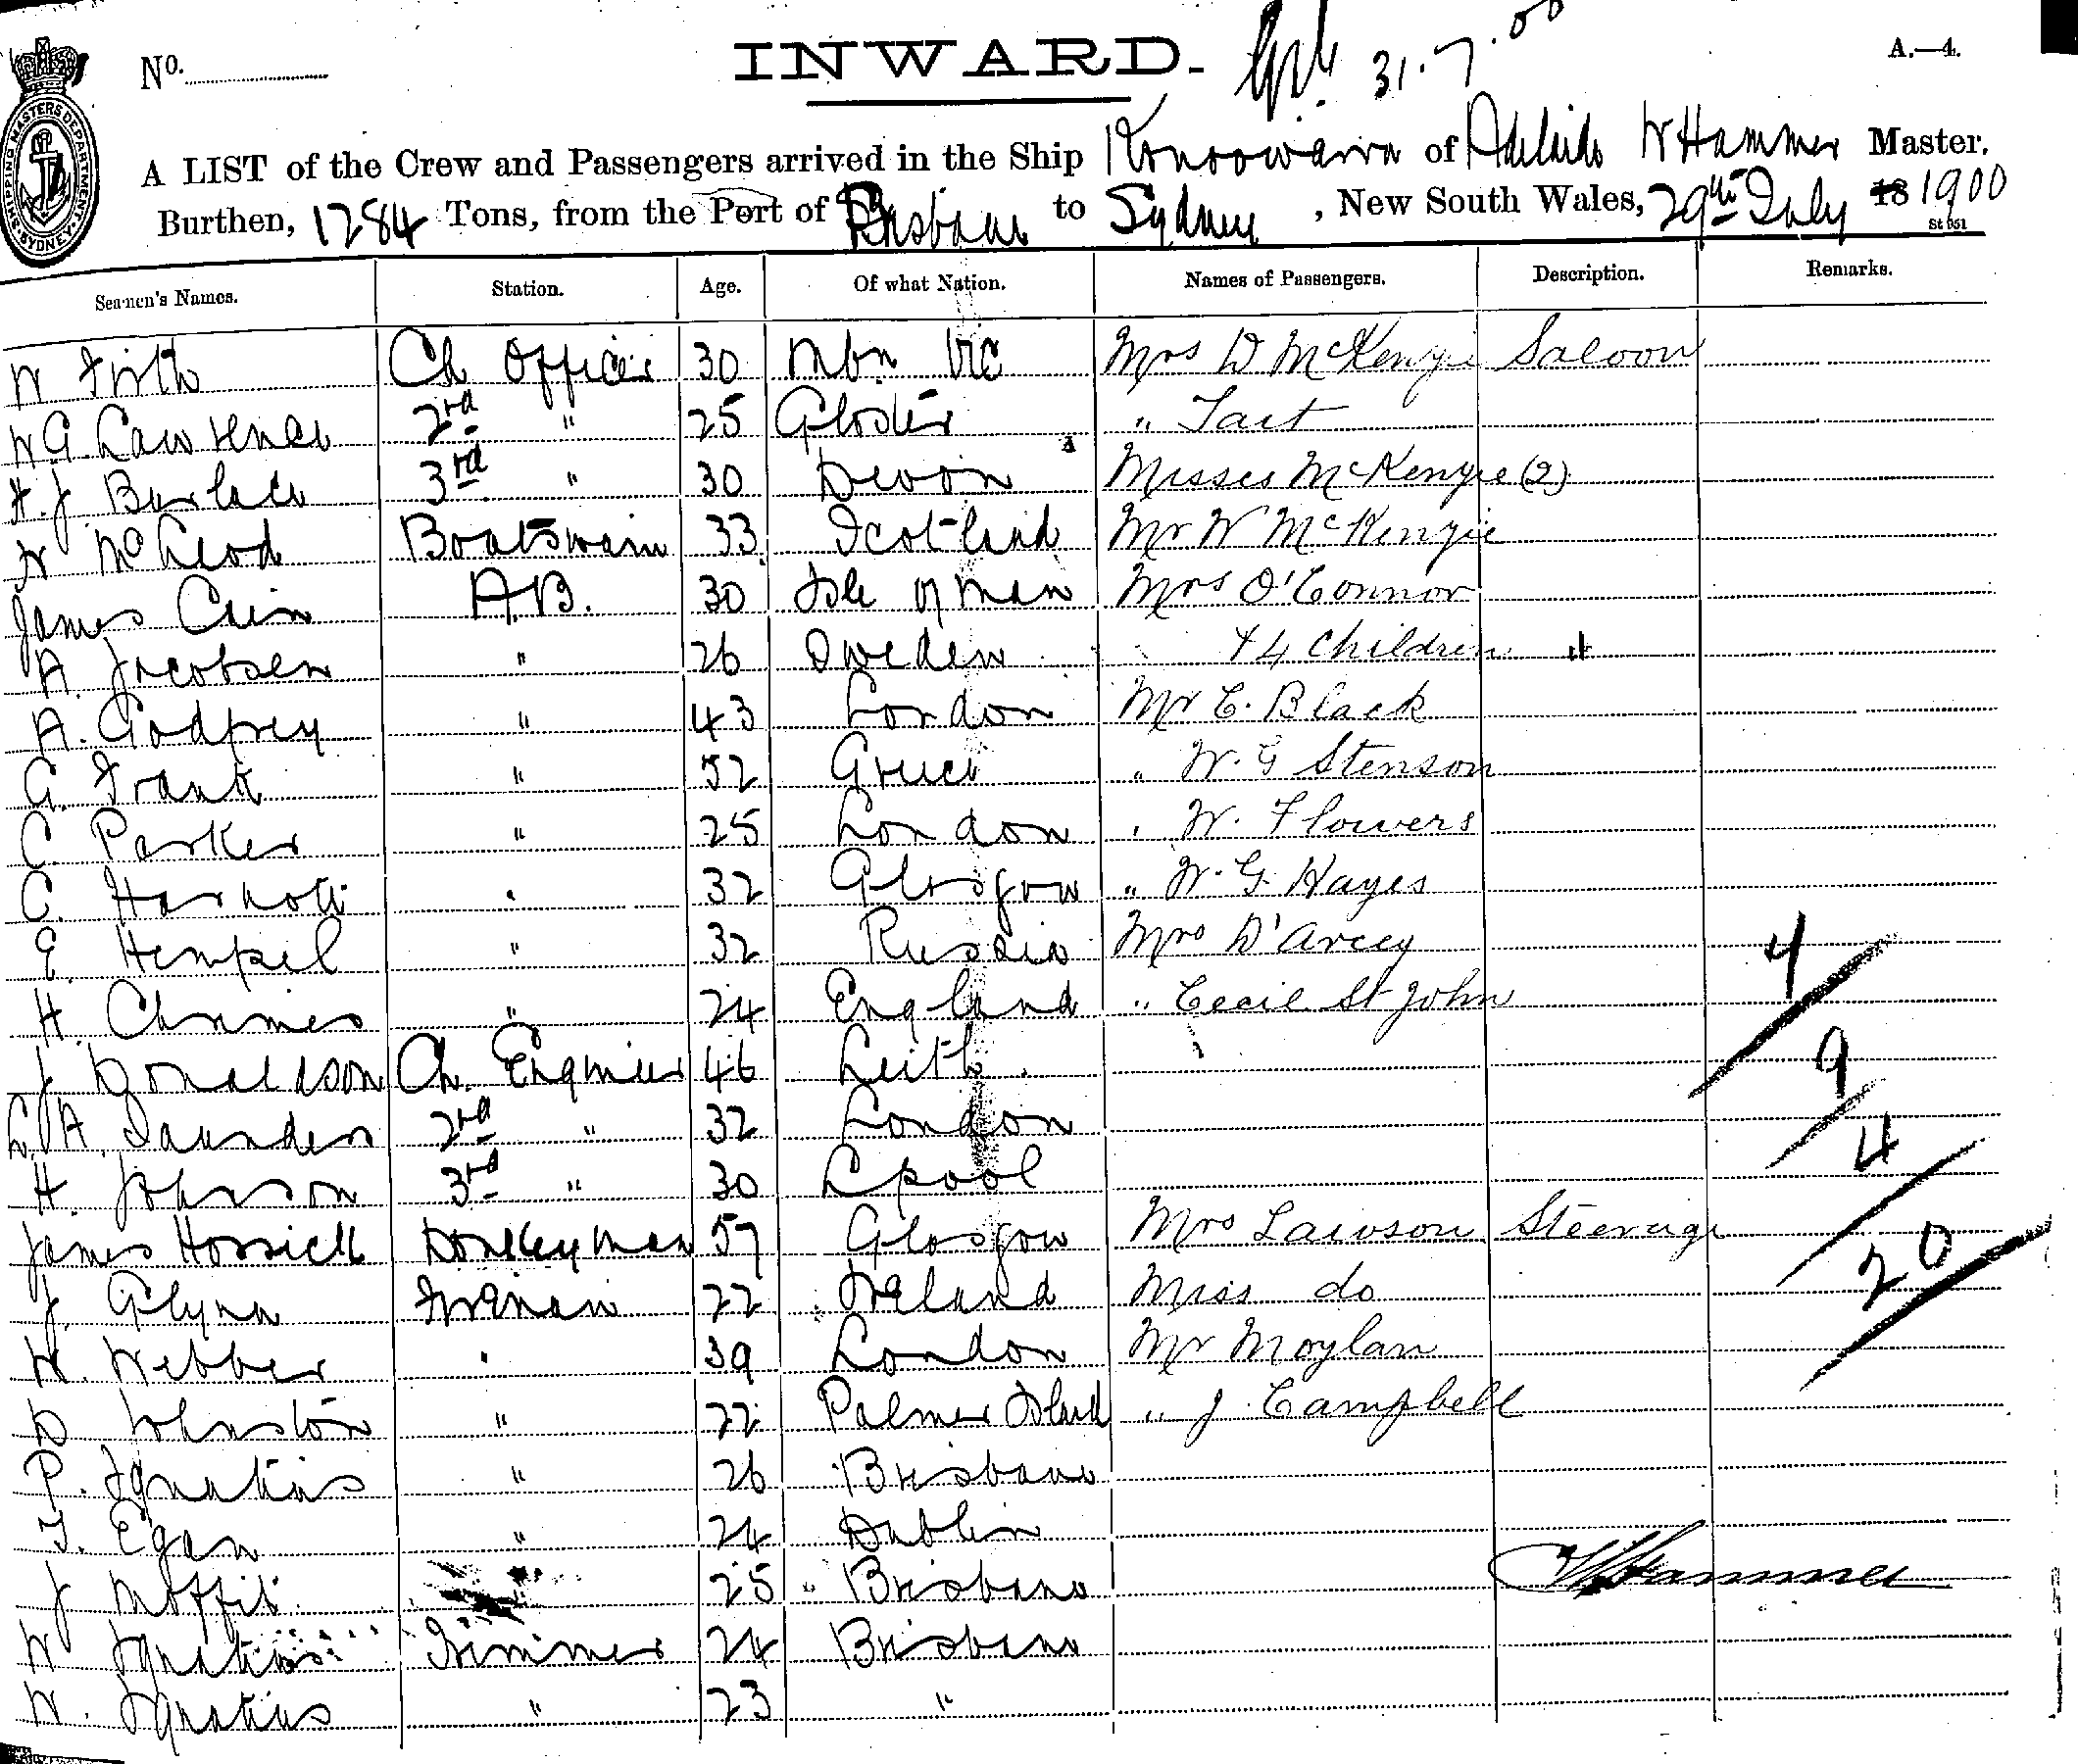 No. INWARD. 31.7.00 A.—4.
SHIPPING MASTERS DEPARTMENT. SYDNEY
A LIST of the Crew and Passengers arrived in the Ship Konoowarra of Adelaide W Hammer Master,
Burthen, 1284 Tons, from the Port of Brisbane to Sydney, New South Wales, 29th July 18 1900
St 951
Seamen's Names. Station. Age. Of what Nation. Names of Passengers. Description. Remarks.
W Firth Ch Officer 30 Mbn Vic Mrs D McKenzie Saloon
W G Lawrence 2nd " 25 Gloster " Tait
H. J. Burlace 3rd " 30 Devon Misses McKenzie (2)
N McLeod Boatswain 33 Scotland Mr W McKenzie
James Cain A.B. 30 Isle of Man Mrs O'Connor
A. Jacobsen " 26 Sweden + 4 Children "
A. Godfrey " 43 London Mr C. Black
G. Frank " 52 Greece " W. G Stenson
C. Parker " 25 London " W. Flowers
C. " 32 Glasgow " W. G. Hayes
E. Hempel " 32 Russia Mrs D'Arcey 4
H. " 24 England " Cecil St John
J Donaldson Ch. Engineer 46 Leith 9
A. Saunders 2nd " 32 London 4
H. Johnson 3rd " 30 Lpool
James Hossick Donkeyman 57 Glasgow Mrs Lawson Steerage 20
J. Glynn Fireman 22 Ireland Miss do
W. Webber " 39 London Mr Moylan
D Johnston " 22 Palmer Island " J. Campbell
P. Ignatius " 26 Brisbane
T. Egan " 24 Dublin
J Moffit " 25 Brisbane W Hammer
W Ignatius Trimmer 24 Brisbane
W. Ignatius " 23 "